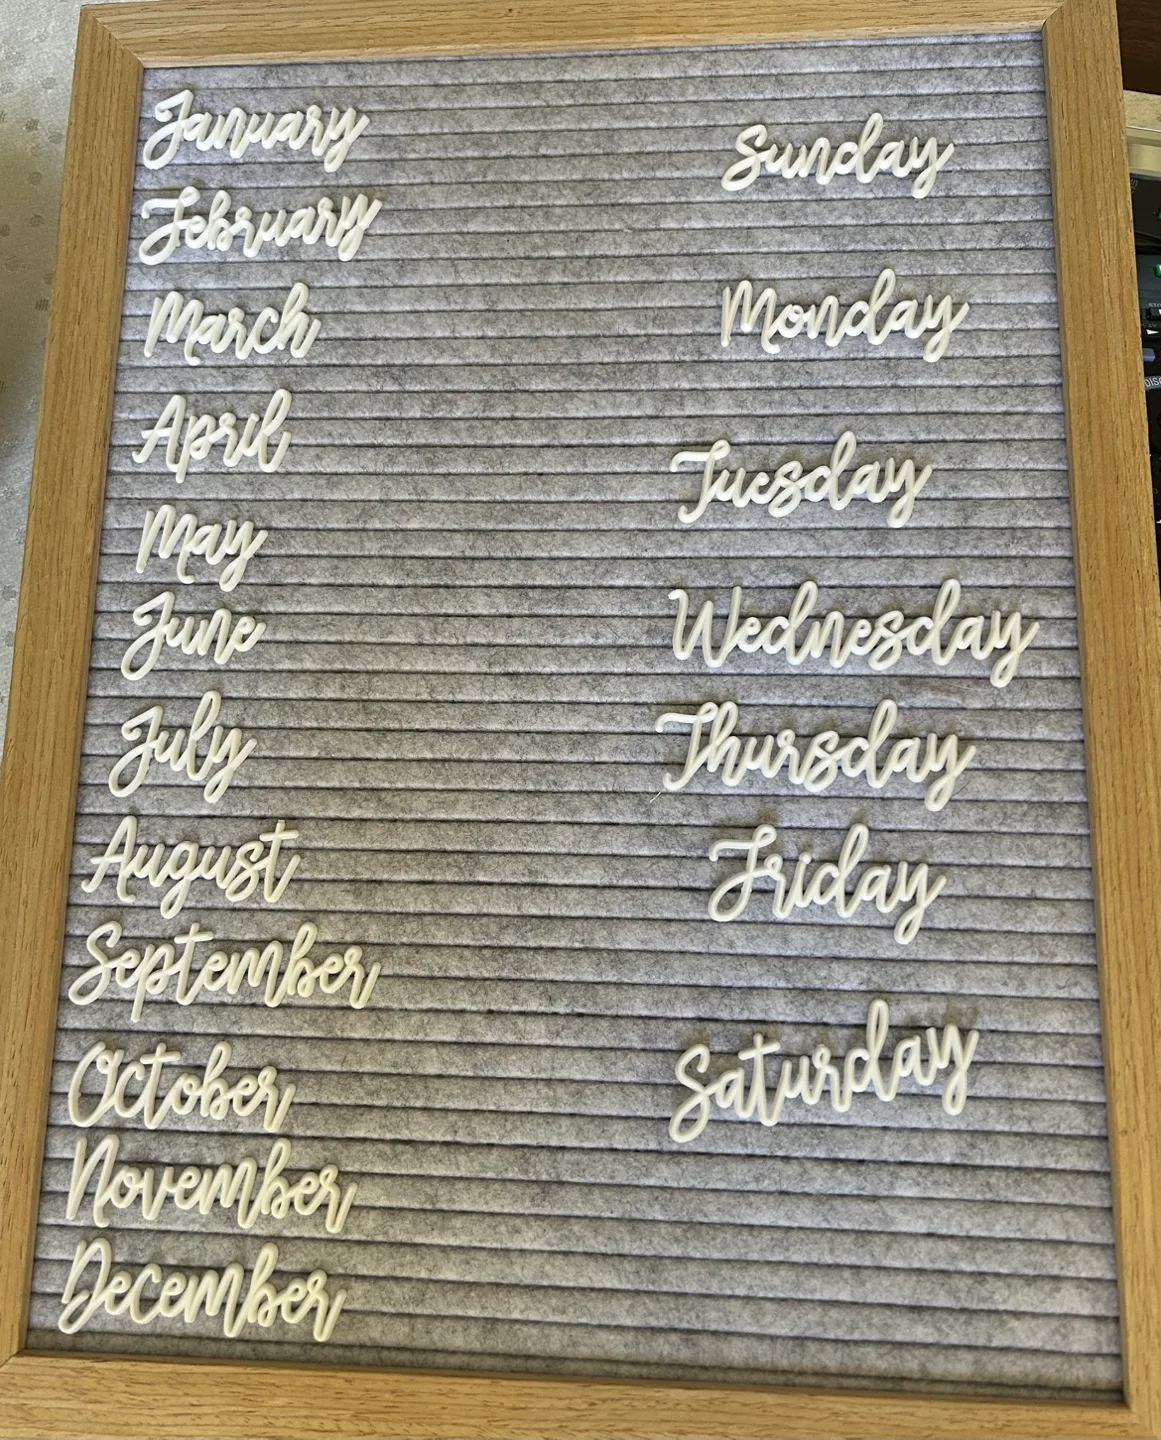 January
February
March
April
May
June
July
August
September
October
November
December
Sunday
Monday
Tuesday
Wednesday
Thursday
Friday
Saturday